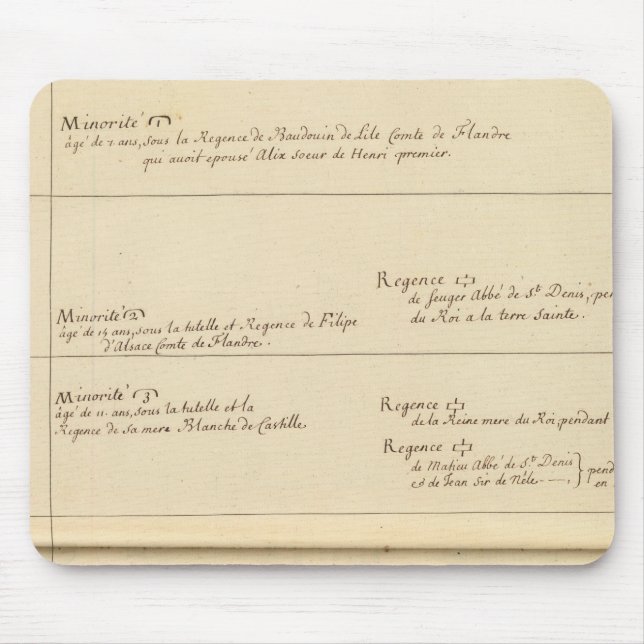 Minorité 1
âgé de 7 ans, sous la Regence de Baudouin de Lile Comte de Flandre
qui avoit epousé Alix soeur de Henri premier.
Regence
de Seuger Abbé de St. Denis, pen
du Roi a la terre Sainte.
Minorité 2
âgé de 15 ans, sous la tutelle et Regence de Filipe
d'Alsace Comte de Flandre.
Minorité 3
âgé de 11. ans, sous la tutelle et la
Regence de sa mere Blanche de Castille.
Regence
de la Reine mere du Roi, pendant
Regence
de Matieu Abbé de St. Denis
et de Jean Sir de Néle
pend
en